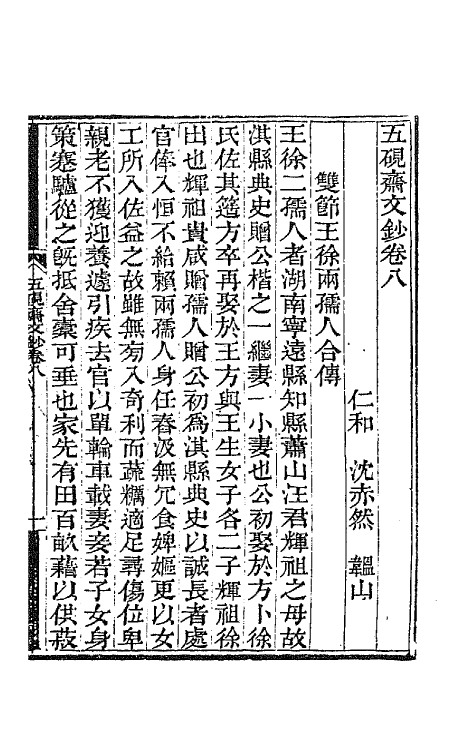 五硯齋文鈔卷八
仁和 沈赤然 韞山
雙節王徐兩孺人合傳
王徐二孺人者湖南寧遠縣知縣蕭山汪君輝祖之母故
淇縣典史贈公楷之一繼妻一小妻也公初娶於方卜徐
氏佐其簉方卒再娶於王方與王生女子各二子輝祖徐
出也輝祖貴咸贈孺人贈公初為淇縣典史以誠長者處
官俸入恒不給賴兩孺人身任舂汲無冗食婢嫗更以女
工所入佐益之故雖無芻入奇利而蔬糲適足尋傷位卑
親老不獲迎養遽引疾去官以單輪車載妻妾若子女身
策蹇驢從之既抵舍橐可垂也家先有田百畝藉以供菽
五硯齋文鈔卷八
一